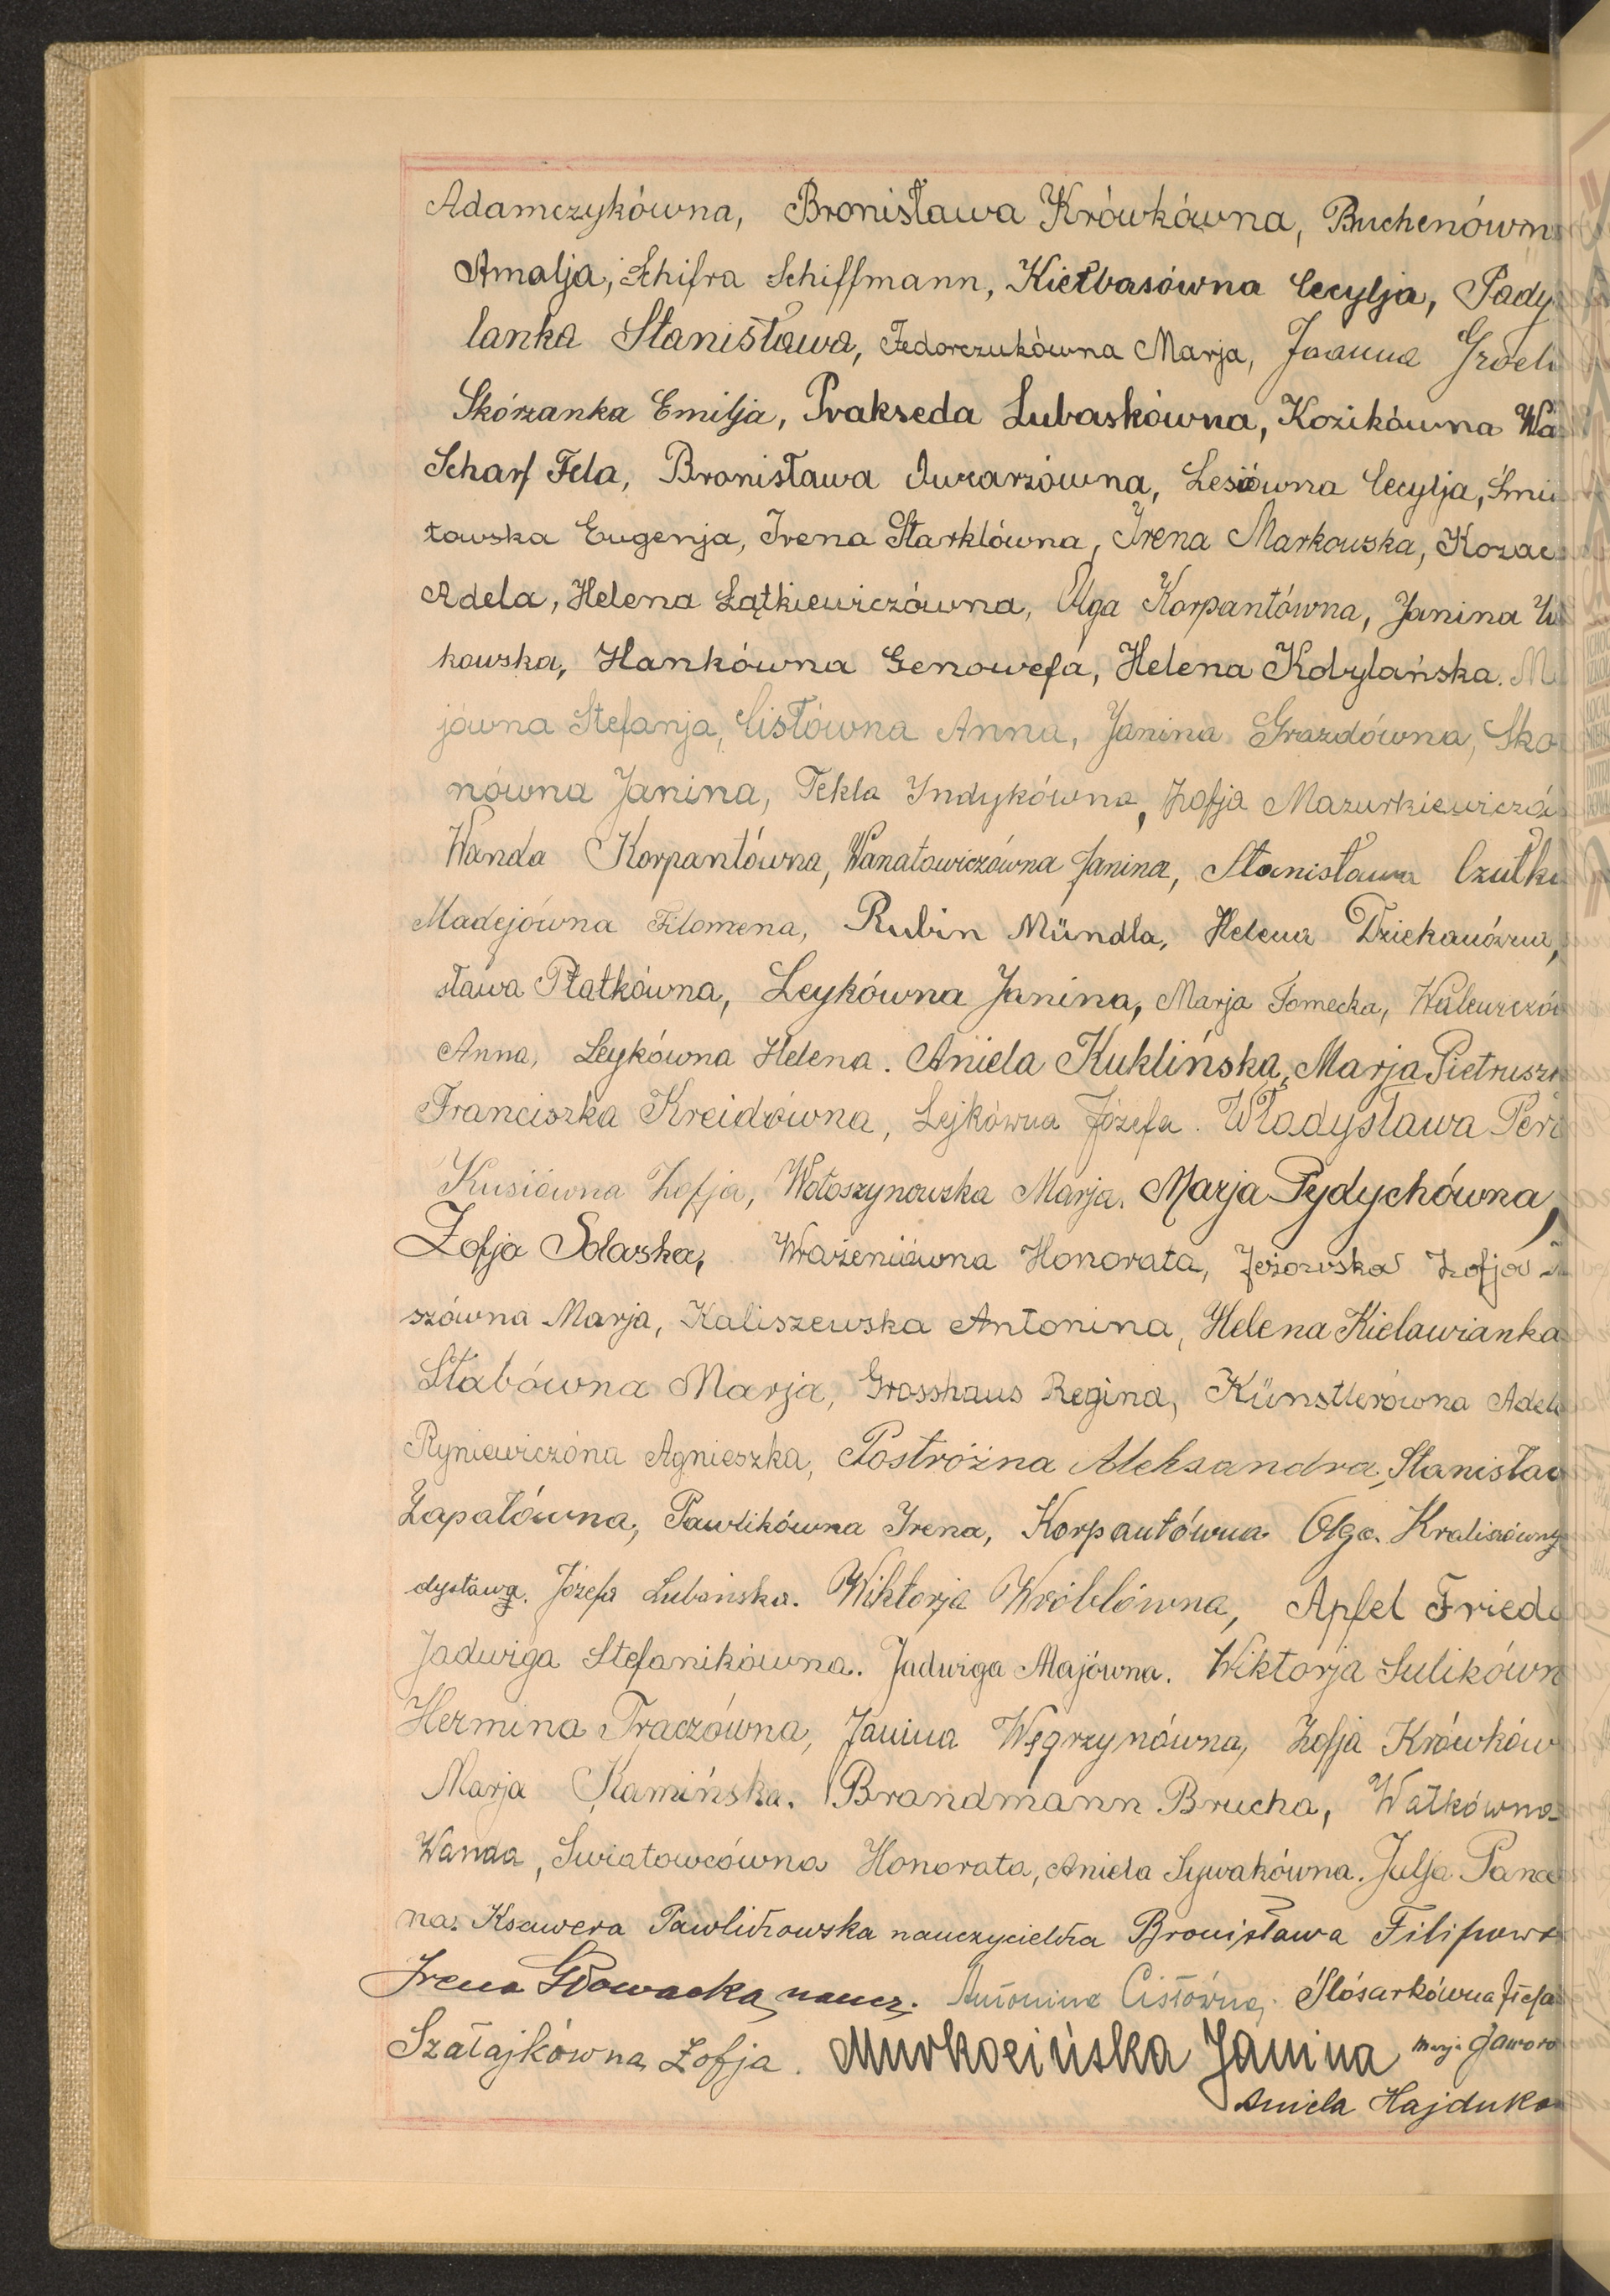 Adamczykówna, Bronisława Krówkówna, Buchenówn
Amalja, Schifra Schiffmann, Kiełbasówna Cecylja, Pady
lanka Stanisława, Fedorczukówna Marja, Joanna
Skórzanka Emilja, Prakseda Lubaskówna, Kozikówna Wa
Scharf Fela, Bronisława Owcarzówna, Lesiówna Cecylja, Śmie
towska Eugenja, Irena Starklówna, Irena Markowska, Kozac
Adela, Helena Łątkiewiczówna, Olga Korpantówna, Janina
kowska, Hankówna Genowefa, Helena Kobylańska. M
jówna Stefanja, Cisłówna Anna, Janina Grazdówna, Sko
nówna Janina, Tekla Indykówna, Zofja Mazurkiewiczó
Wanda Korpantówna, Wanatowiczówna Janina, Stanisława Czutk
Madejówna Filomena, Rubin Mündla, Helena Dziekanówna,
sława Płatkówna, Leykówna Janina, Marja Tomecka, Walewiczó
Anna, Leykówna Helena. Aniela Kuklińska, Marja Pietrusz
Franciszka Kreidówna, Lejkówna Józefa. Władysława Per
Kusiówna Zofja, Wołoszynowska Marja. Marja Pydychówna,
Zofja Solarska, Wrażeniówna Honorata, Jeżowska Zofja
szówna Marja, Kaliszewska Antonina, Helena Kielawianka
Słabówna Marja, Grosshaus Regina, Künstlerówna Adel
Ryniewiczóna Agnieszka, Postróżna Aleksandra, Stanisław
Zapałówna, Pawlikówna Irena, Korpantówna Olga. Kraliszówn
dysława. Józefa Lubińska. Wiktorja Wróblówna, Apfel Frieda
Jadwiga Stefanikówna. Jadwiga Majówna. Wiktorja Sulikówn
Hermina Traczówna, Janina Węgrzynówna, Zofja Krówków
Marja Kamińska. Brandmann Brucha, Wałkówna
Wanda, Swiatowcówna Honorata, Aniela Sywakówna. Julja Pana
na. Ksawera Pawlikowska nauczycielka Bronisława Filipow
Irena Głowacka, naucz. Antonina Cisłówna. Ślósarkówna Józefa
Szałajkówna Zofja. Murkocińska Janina Marja Jaworo
Aniela Hajduko